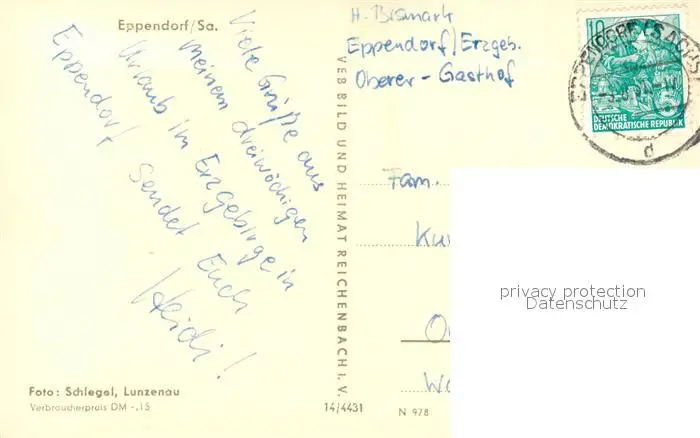 Eppendorf/Sa.
Viele Grüße aus
meinem dreiwöchigen
Urlaub im Erzgebirge in
Eppendorf sendet Euch
Heidi!
Foto: Schlegel, Lunzenau
Verbraucherpreis DM -,15
VEB BILD UND HEIMAT REICHENBACH I. V.
14/4431
N 978
H. Bismark
Eppendorf/Erzgeb.
Oberer - Gasthof
10
DEUTSCHE
DEMOKRATISCHE REPUBLIK
EPPENDORF (SACHS)
d
Fam.
privacy protection
Datenschutz